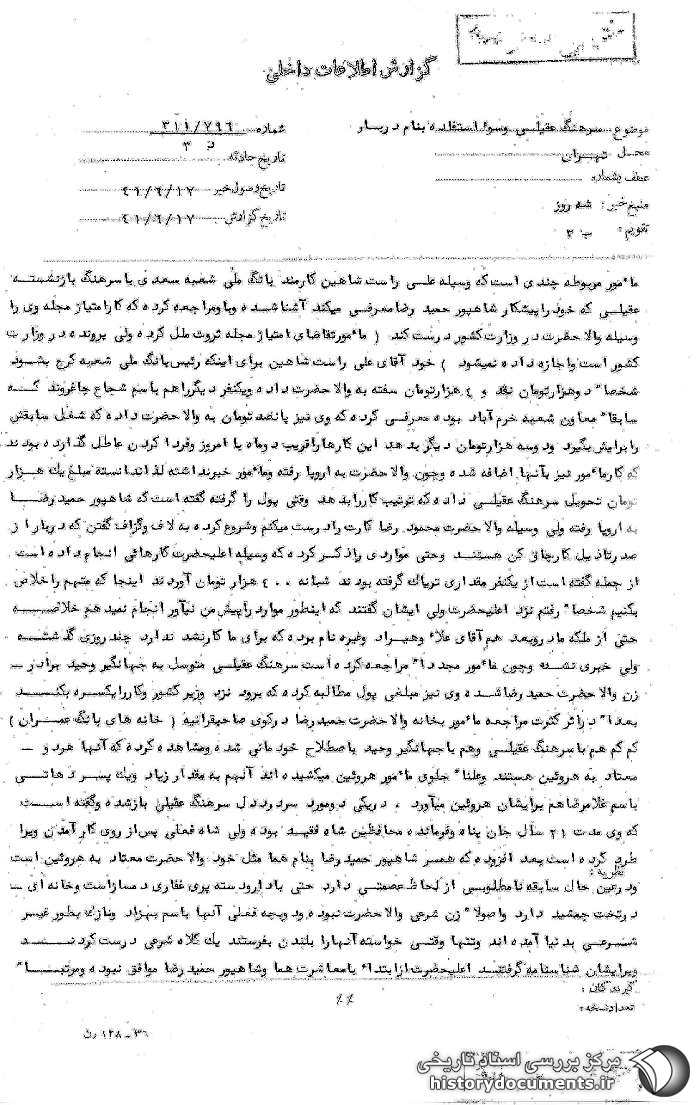 گزارش اطلاعات داخلی
موضوع سرهنگ عقیلی وسوء استفاده بنام دربار
شماره ۳۱۱/۷۹۶
د ۳
محل تهران
تاریخ حادثه
عطف بشماره
تاریخ وصول خبر ۴۱/۶/۱۷
منبع خبر: شه روز
تاریخ گزارش ۴۱/۶/۱۷
تقویم: ب ۳
مأمور مربوطه چندی است که وسیله علی راست شاهین کارمند بانک ملی شعبه سعدی با سرهنگ بازنشسته
عقیلی که خود را پیشکار شاهپور حمید رضا معرفی میکند آشنا شده و باو مراجعه کرده که کار امتیاز مجله وی را
وسیله والا حضرت در وزارت کشور درست کند ( مأمور تقاضای امتیاز مجله ثروت ملل کرده ولی پرونده در وزارت
کشور است و اجازه داده نمیشود ) خود آقای علی راست شاهین برای اینکه رئیس بانک ملی شعبه کرج بشود
شخصاً دوهزار تومان نقد و ۴ هزار تومان سفته به والا حضرت داده و یکنفر دیگر را هم باسم شجاع چاغروند که
سابقاً معاون شعبه خرم آباد بوده معرفی کرده که وی نیز پانصد تومان به والا حضرت داده که شغل سابقش
را برایش بگیرد و دوسه هزار تومان دیگر بدهد این کارها را قریب دوماه با امروز و فردا کردن عاطل گذارده بودند
که کار مأمور نیز بآنها اضافه شده و چون والا حضرت به اروپا رفته و مأمور خبر نداشته لذا ندانسته مبلغ یک هزار
تومان تحویل سرهنگ عقیلی داده که ترتیب کار را بدهد وقتی پول را گرفته گفته است که شاهپور حمید رضا
به اروپا رفته ولی وسیله والا حضرت محمود رضا کارت را درست میکنم و شروع کرده به لاف و گزاف گفتن که دربار از
صدر تا ذیل کارچاق کن هستند و حتی مواردی را ذکر کرده که وسیله اعلیحضرت کارهائی انجام داده است
از جمله گفته است از یکنفر مقداری تریاک گرفته بودند شبانه ۴۰۰ هزار تومان آوردند اینجا که متهم را خلاص
بکنیم شخصاً رفتم نزد اعلیحضرت ولی ایشان گفتند که اینطور موارد را پیش من نیآور انجام نمیدهم خلاصه
حتی از ملکه مادر و بعد هم آقای علاء و هیراد و غیره نام بوده که برای ما کار نشد ندارد چند روزی گذشته
ولی خبری نشده و چون مأمور مجدداً مراجعه کرده است سرهنگ عقیلی متوسل به جهانگیر وحید برادر
زن والا حضرت حمید رضا شده وی نیز مبلغی پول مطالبه کرده که برود نزد وزیر کشور و کار را یکسره بکند
بعداً در اثر کثرت مراجعه مأمور بخانه والا حضرت حمید رضا در کوی صاحبقرانیه ( خانه های بانک عمران )
کم کم هم با سرهنگ عقیلی و هم با جهانگیر وحید باصطلاح خودمانی شده و مشاهده کرده که آنها هر دو
معتاد به هروئین هستند و علناً جلوی مأمور هروئین میکشیده اند آنهم به مقدار زیاد و یک پسر دهاتی
باسم غلامرضا هم برایشان هروئین میآورد ، در یکی دو مورد سر درد دل سرهنگ عقیلی باز شده و گفته است
که وی مدت ۲۱ سال جان پناه و فرمانده محافظین شاه فقید بوده ولی شاه فعلی پس از روی کار آمدن ویرا
طرد کرده است بعد افزوده که همسر شاهپور حمید رضا بنام هما مثل خود والا حضرت معتاد به هروئین است
نظریه:
و در عین حال سابقه نامطلوبی از لحاظ عصمتی دارد حتی با دارودسته پری غفاری دمساز است و خانه ای
در تخت جمشید دارد و اصولاً زن شرعی والا حضرت نبوده و دو بچه فعلی آنها باسم بهزاد و نازک بطور غیر
شرعی بدنیا آمده اند و تنها وقتی خواسته آنها را بلندن بفرستند یک کلاه شرعی درست کردند
و برایشان شناسنامه گرفتند اعلیحضرت از ابتداء با معاشرت هما و شاهپور حمید رضا موافق نبوده و مرتبتاً
گیرندگان:
تعداد نسخه:
۳۶-۱۲۸ ن
مرکز بررسی اسناد تاریخی
historydocuments.ir